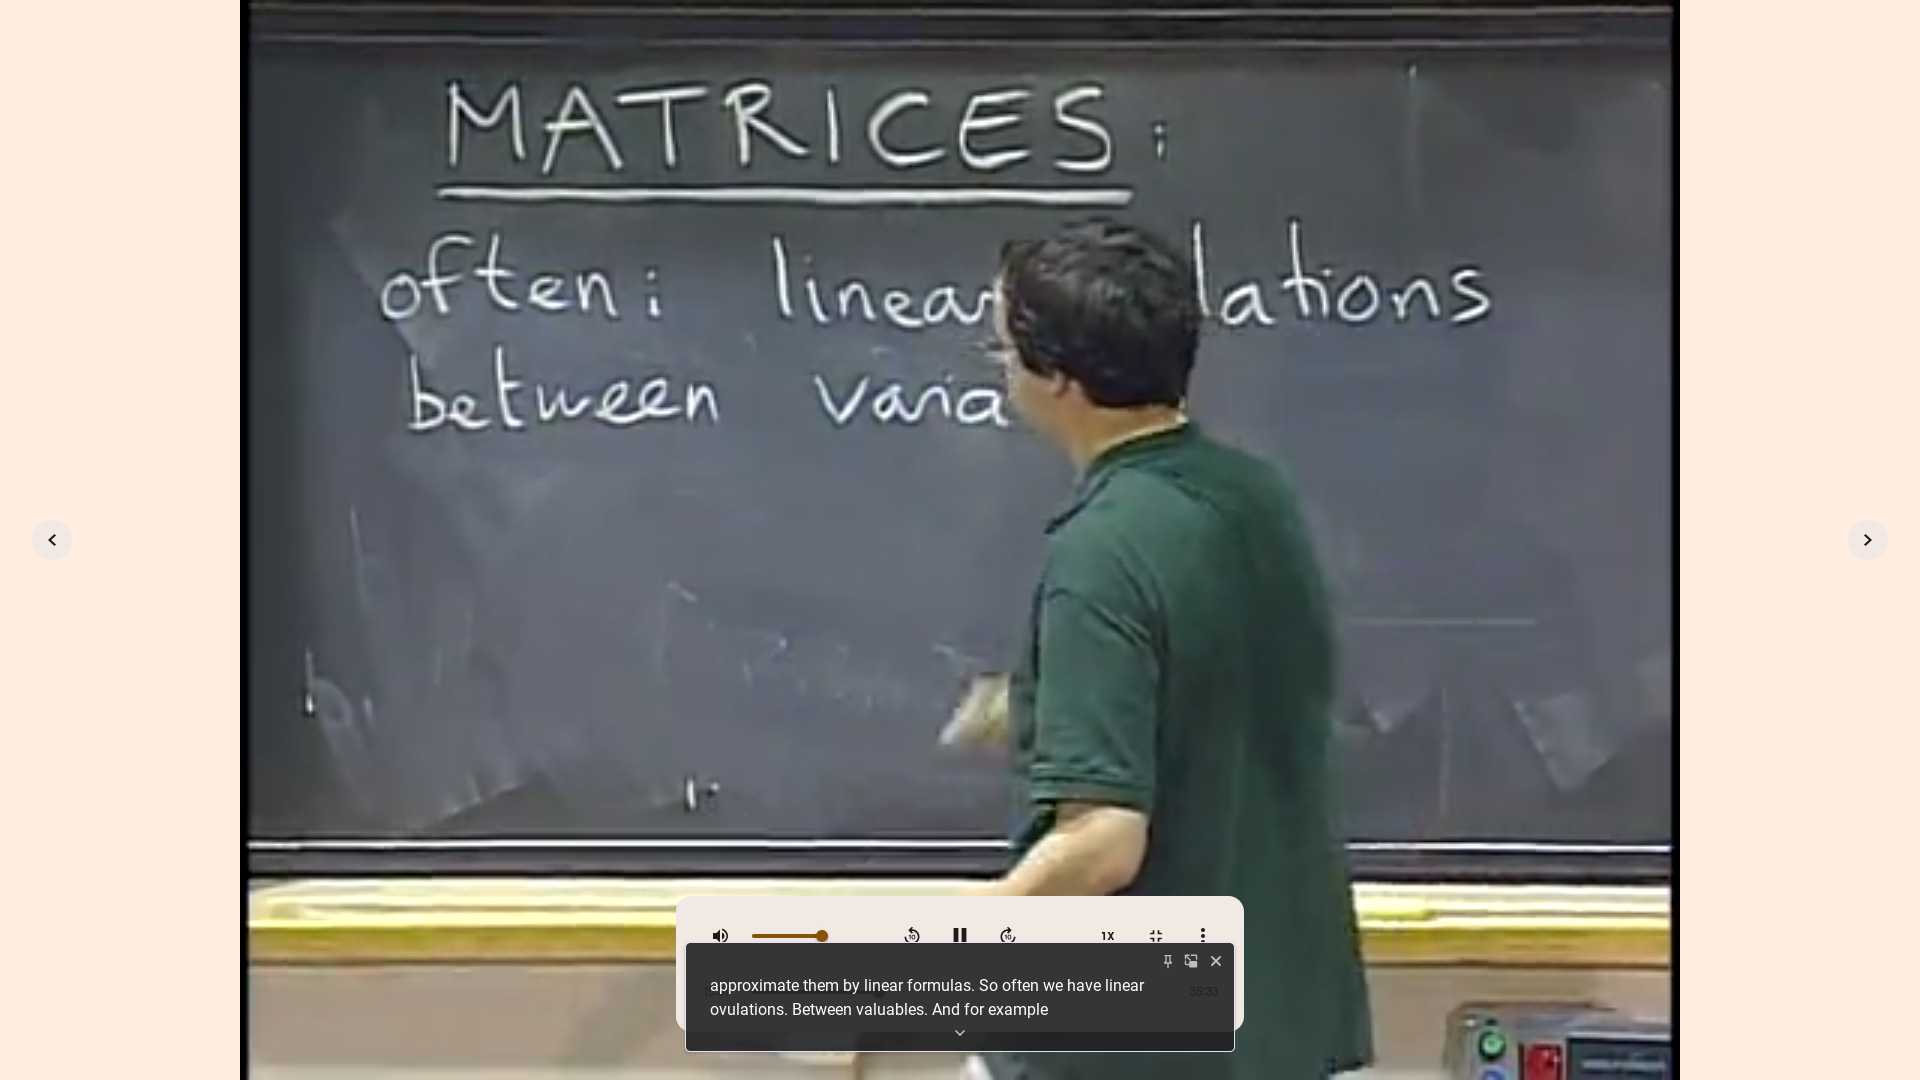 MATRICES:
often: linear lations
between varia
1X
35:33
approximate them by linear formulas. So often we have linear
ovulations. Between valuables. And for example